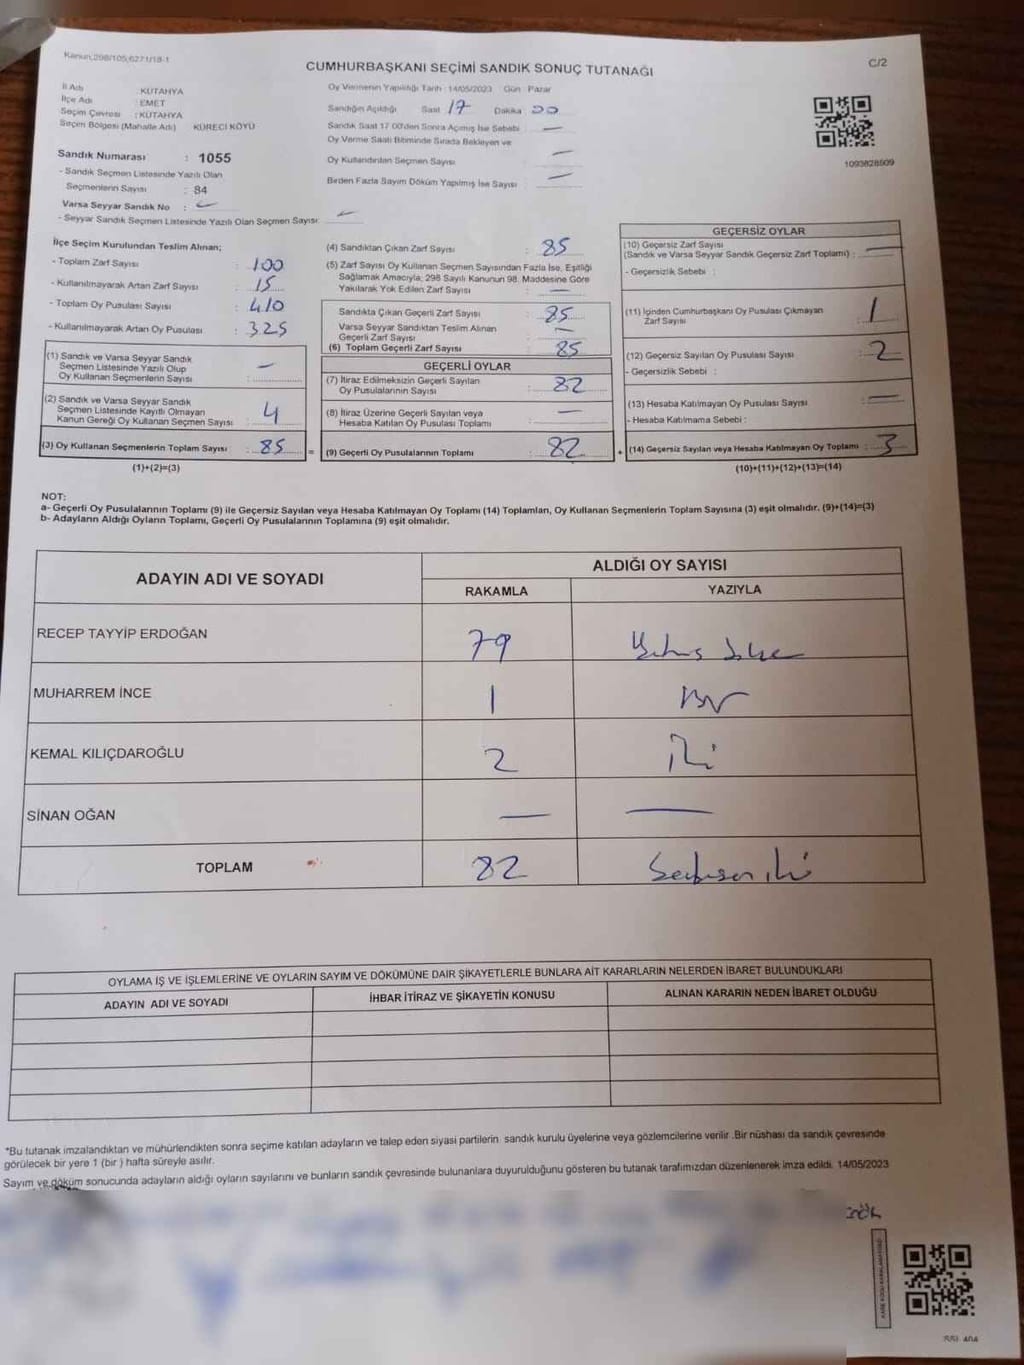 Kanun;298/105,6271/18-1
C/2
CUMHURBAŞKANI SEÇİMİ SANDIK SONUÇ TUTANAĞI
İl Adı : KÜTAHYA
İlçe Adı : EMET
Seçim Çevresi : KÜTAHYA
Seçim Bölgesi (Mahalle Adı) KÜRECİ KÖYÜ
Sandık Numarası : 1055
- Sandık Seçmen Listesinde Yazılı Olan
Seçmenlerin Sayısı : 84
Varsa Seyyar Sandık No : —
- Seyyar Sandık Seçmen Listesinde Yazılı Olan Seçmen Sayısı: —
Oy Vermenin Yapıldığı Tarih : 14/05/2023 Gün Pazar
Sandığın Açıldığı Saat 17 Dakika 00
Sandık Saat 17:00'den Sonra Açılmış İse Sebebi —
Oy Verme Saati Bitiminde Sırada Bekleyen ve
Oy Kullandırılan Seçmen Sayısı —
Birden Fazla Sayım Döküm Yapılmış İse Sayısı : —
1093828509
İlçe Seçim Kurulundan Teslim Alınan;
- Toplam Zarf Sayısı : 100
- Kullanılmayarak Artan Zarf Sayısı : 15
- Toplam Oy Pusulası Sayısı : 410
- Kullanılmayarak Artan Oy Pusulası : 325
(1) Sandık ve Varsa Seyyar Sandık
Seçmen Listesinde Yazılı Olup
Oy Kullanan Seçmenlerin Sayısı : —
(2) Sandık ve Varsa Seyyar Sandık
Seçmen Listesinde Kayıtlı Olmayan
Kanun Gereği Oy Kullanan Seçmen Sayısı : 4
(3) Oy Kullanan Seçmenlerin Toplam Sayısı : 85
(1)+(2)=(3)
(4) Sandıktan Çıkan Zarf Sayısı : 85
(5) Zarf Sayısı Oy Kullanan Seçmen Sayısından Fazla İse, Eşitliği
Sağlamak Amacıyla; 298 Sayılı Kanunun 98. Maddesine Göre
Yakılarak Yok Edilen Zarf Sayısı : —
Sandıkta Çıkan Geçerli Zarf Sayısı : 85
Varsa Seyyar Sandıktan Teslim Alınan
Geçerli Zarf Sayısı : —
(6) Toplam Geçerli Zarf Sayısı : 85
GEÇERLİ OYLAR
(7) İtiraz Edilmeksizin Geçerli Sayılan
Oy Pusulalarının Sayısı : 82
(8) İtiraz Üzerine Geçerli Sayılan veya
Hesaba Katılan Oy Pusulası Toplamı : —
= (9) Geçerli Oy Pusulalarının Toplamı : 82
GEÇERSİZ OYLAR
(10) Geçersiz Zarf Sayısı
(Sandık ve Varsa Seyyar Sandık Geçersiz Zarf Toplamı) : —
- Geçersizlik Sebebi :
(11) İçinden Cumhurbaşkanı Oy Pusulası Çıkmayan
Zarf Sayısı : 1
(12) Geçersiz Sayılan Oy Pusulası Sayısı : 2
- Geçersizlik Sebebi :
(13) Hesaba Katılmayan Oy Pusulası Sayısı : —
- Hesaba Katılmama Sebebi :
+ (14) Geçersiz Sayılan veya Hesaba Katılmayan Oy Toplamı : 3
(10)+(11)+(12)+(13)=(14)
NOT:
a- Geçerli Oy Pusulalarının Toplamı (9) ile Geçersiz Sayılan veya Hesaba Katılmayan Oy Toplamı (14) Toplamları, Oy Kullanan Seçmenlerin Toplam Sayısına (3) eşit olmalıdır. (9)+(14)=(3)
b- Adayların Aldığı Oyların Toplamı, Geçerli Oy Pusulalarının Toplamına (9) eşit olmalıdır.
ADAYIN ADI VE SOYADI
ALDIĞI OY SAYISI
RAKAMLA YAZIYLA
RECEP TAYYİP ERDOĞAN 79
MUHARREM İNCE 1 Bir
KEMAL KILIÇDAROĞLU 2 İki
SİNAN OĞAN — —
TOPLAM 82 Seksen iki
OYLAMA İŞ VE İŞLEMLERİNE VE OYLARIN SAYIM VE DÖKÜMÜNE DAİR ŞİKAYETLERLE BUNLARA AİT KARARLARIN NELERDEN İBARET BULUNDUKLARI
ADAYIN ADI VE SOYADI İHBAR İTİRAZ VE ŞİKAYETİN KONUSU ALINAN KARARIN NEDEN İBARET OLDUĞU
*Bu tutanak imzalandıktan ve mühürlendikten sonra seçime katılan adayların ve talep eden siyasi partilerin sandık kurulu üyelerine veya gözlemcilerine verilir .Bir nüshası da sandık çevresinde
görülecek bir yere 1 (bir ) hafta süreyle asılır.
Sayım ve döküm sonucunda adayların aldığı oyların sayılarını ve bunların sandık çevresinde bulunanlara duyurulduğunu gösteren bu tutanak tarafımızdan düzenlenerek imza edildi. 14/05/2023